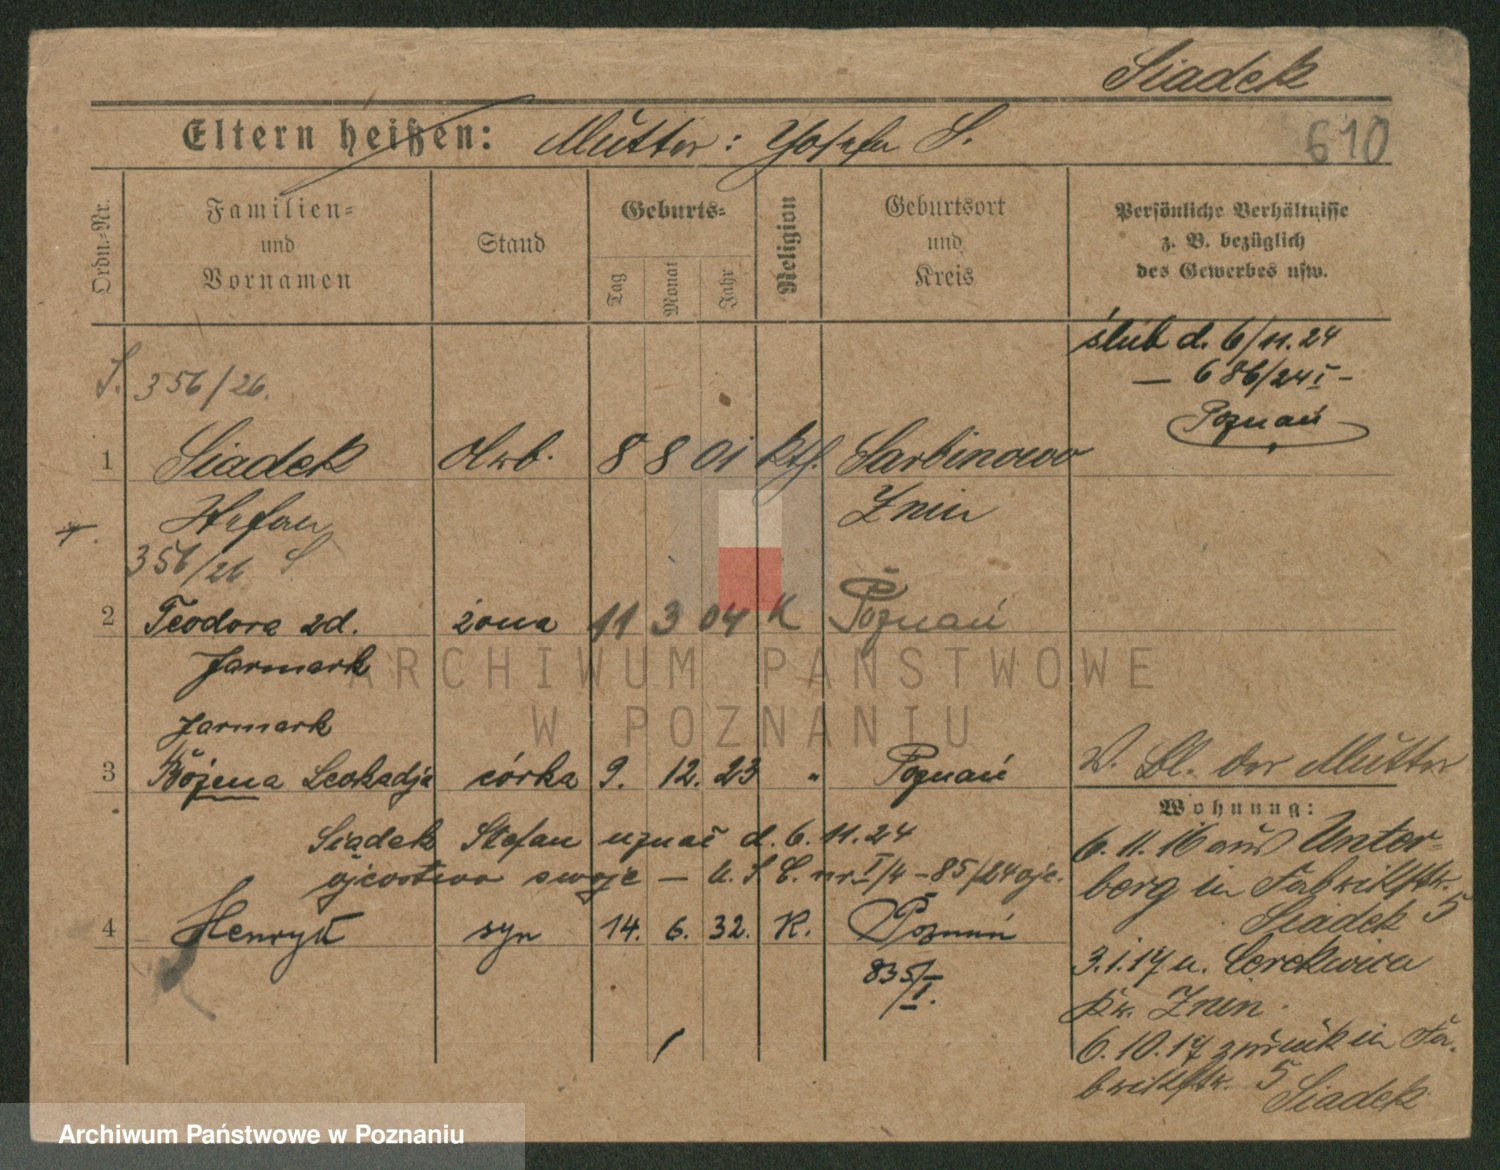 Siadek
Eltern heißen: Mutter: Josefa S.
610
Ordn.-Nr.
Familien-
und
Vornamen
Stand
Geburts-
Tag
Monat
Jahr
Religion
Geburtsort
und
Kreis
Persönliche Verhältnisse
z. B. bezüglich
des Gewerbes usw.
ślub d. 6/11.24
— 686/24 I —
Poznań
S. 356/26.
1 Siadek Arb. 8 8 01 kth. Sarbinowo
Stefan Znin
356/26 S
2 Teodora zd. żona 11 3 04 K Poznań
Jarmark
Jarmark
3 Bożena Leokadja córka 9. 12. 23 " Poznań
Siadek Stefan uznał d. 6.11.24
ojcostwo swoje — U.S.C. nr. I/4 - 85/24
4 Henryk syn 14. 6. 32. K. Poznań
835/I.
Bl. der Mutter
Wohnung:
6.11.16 aus Unter-
berg in Fabrikstr.
Siadek 5
3.1.17 n. Cerekwica
Kr. Znin.
6.10.17 zurück in Fa-
brikstr. 5
Siadek
ARCHIWUM PAŃSTWOWE
W POZNANIU
Archiwum Państwowe w Poznaniu